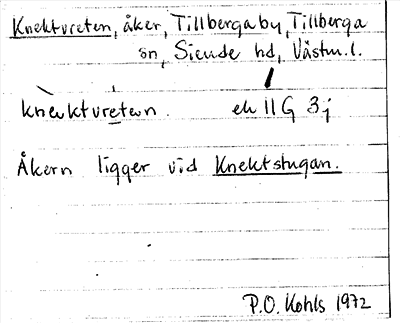 Knektvreten, åker, Tillberga by, Tillberga
sn, Siende hd, Västm.l.
ek 11G 3j
Åkern ligger vid Knektstugan.
P.O. Kohls 1972